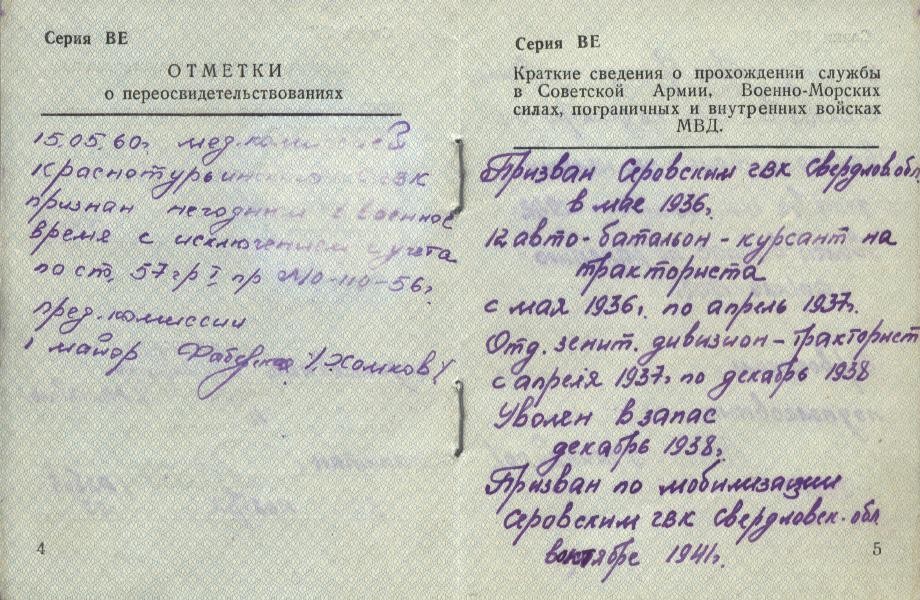 Серия ВЕ
ОТМЕТКИ
о переосвидетельствованиях
15.05.60г. мед.комиссией
Краснотурьинского ГВК
признан негодным в военное
время с исключением с учета
по ст. 57 гр I пр МО-110-56г.
пред.комиссии
майор /Холиков/
4
Серия ВЕ
Краткие сведения о прохождении службы
в Советской Армии, Военно-Морских
силах, пограничных и внутренних войсках
МВД.
Призван Серовским гвк Свердлов.обл
в мае 1936г.
12 авто-батальон - курсант на
тракториста
с мая 1936г. по апрель 1937г.
Отд. зенит. дивизион - тракторист
с апреля 1937г по декабрь 1938
Уволен в запас
декабрь 1938г.
Призван по мобилизации
Серовским гвк Свердловск. обл
в октябре 1941г.
5